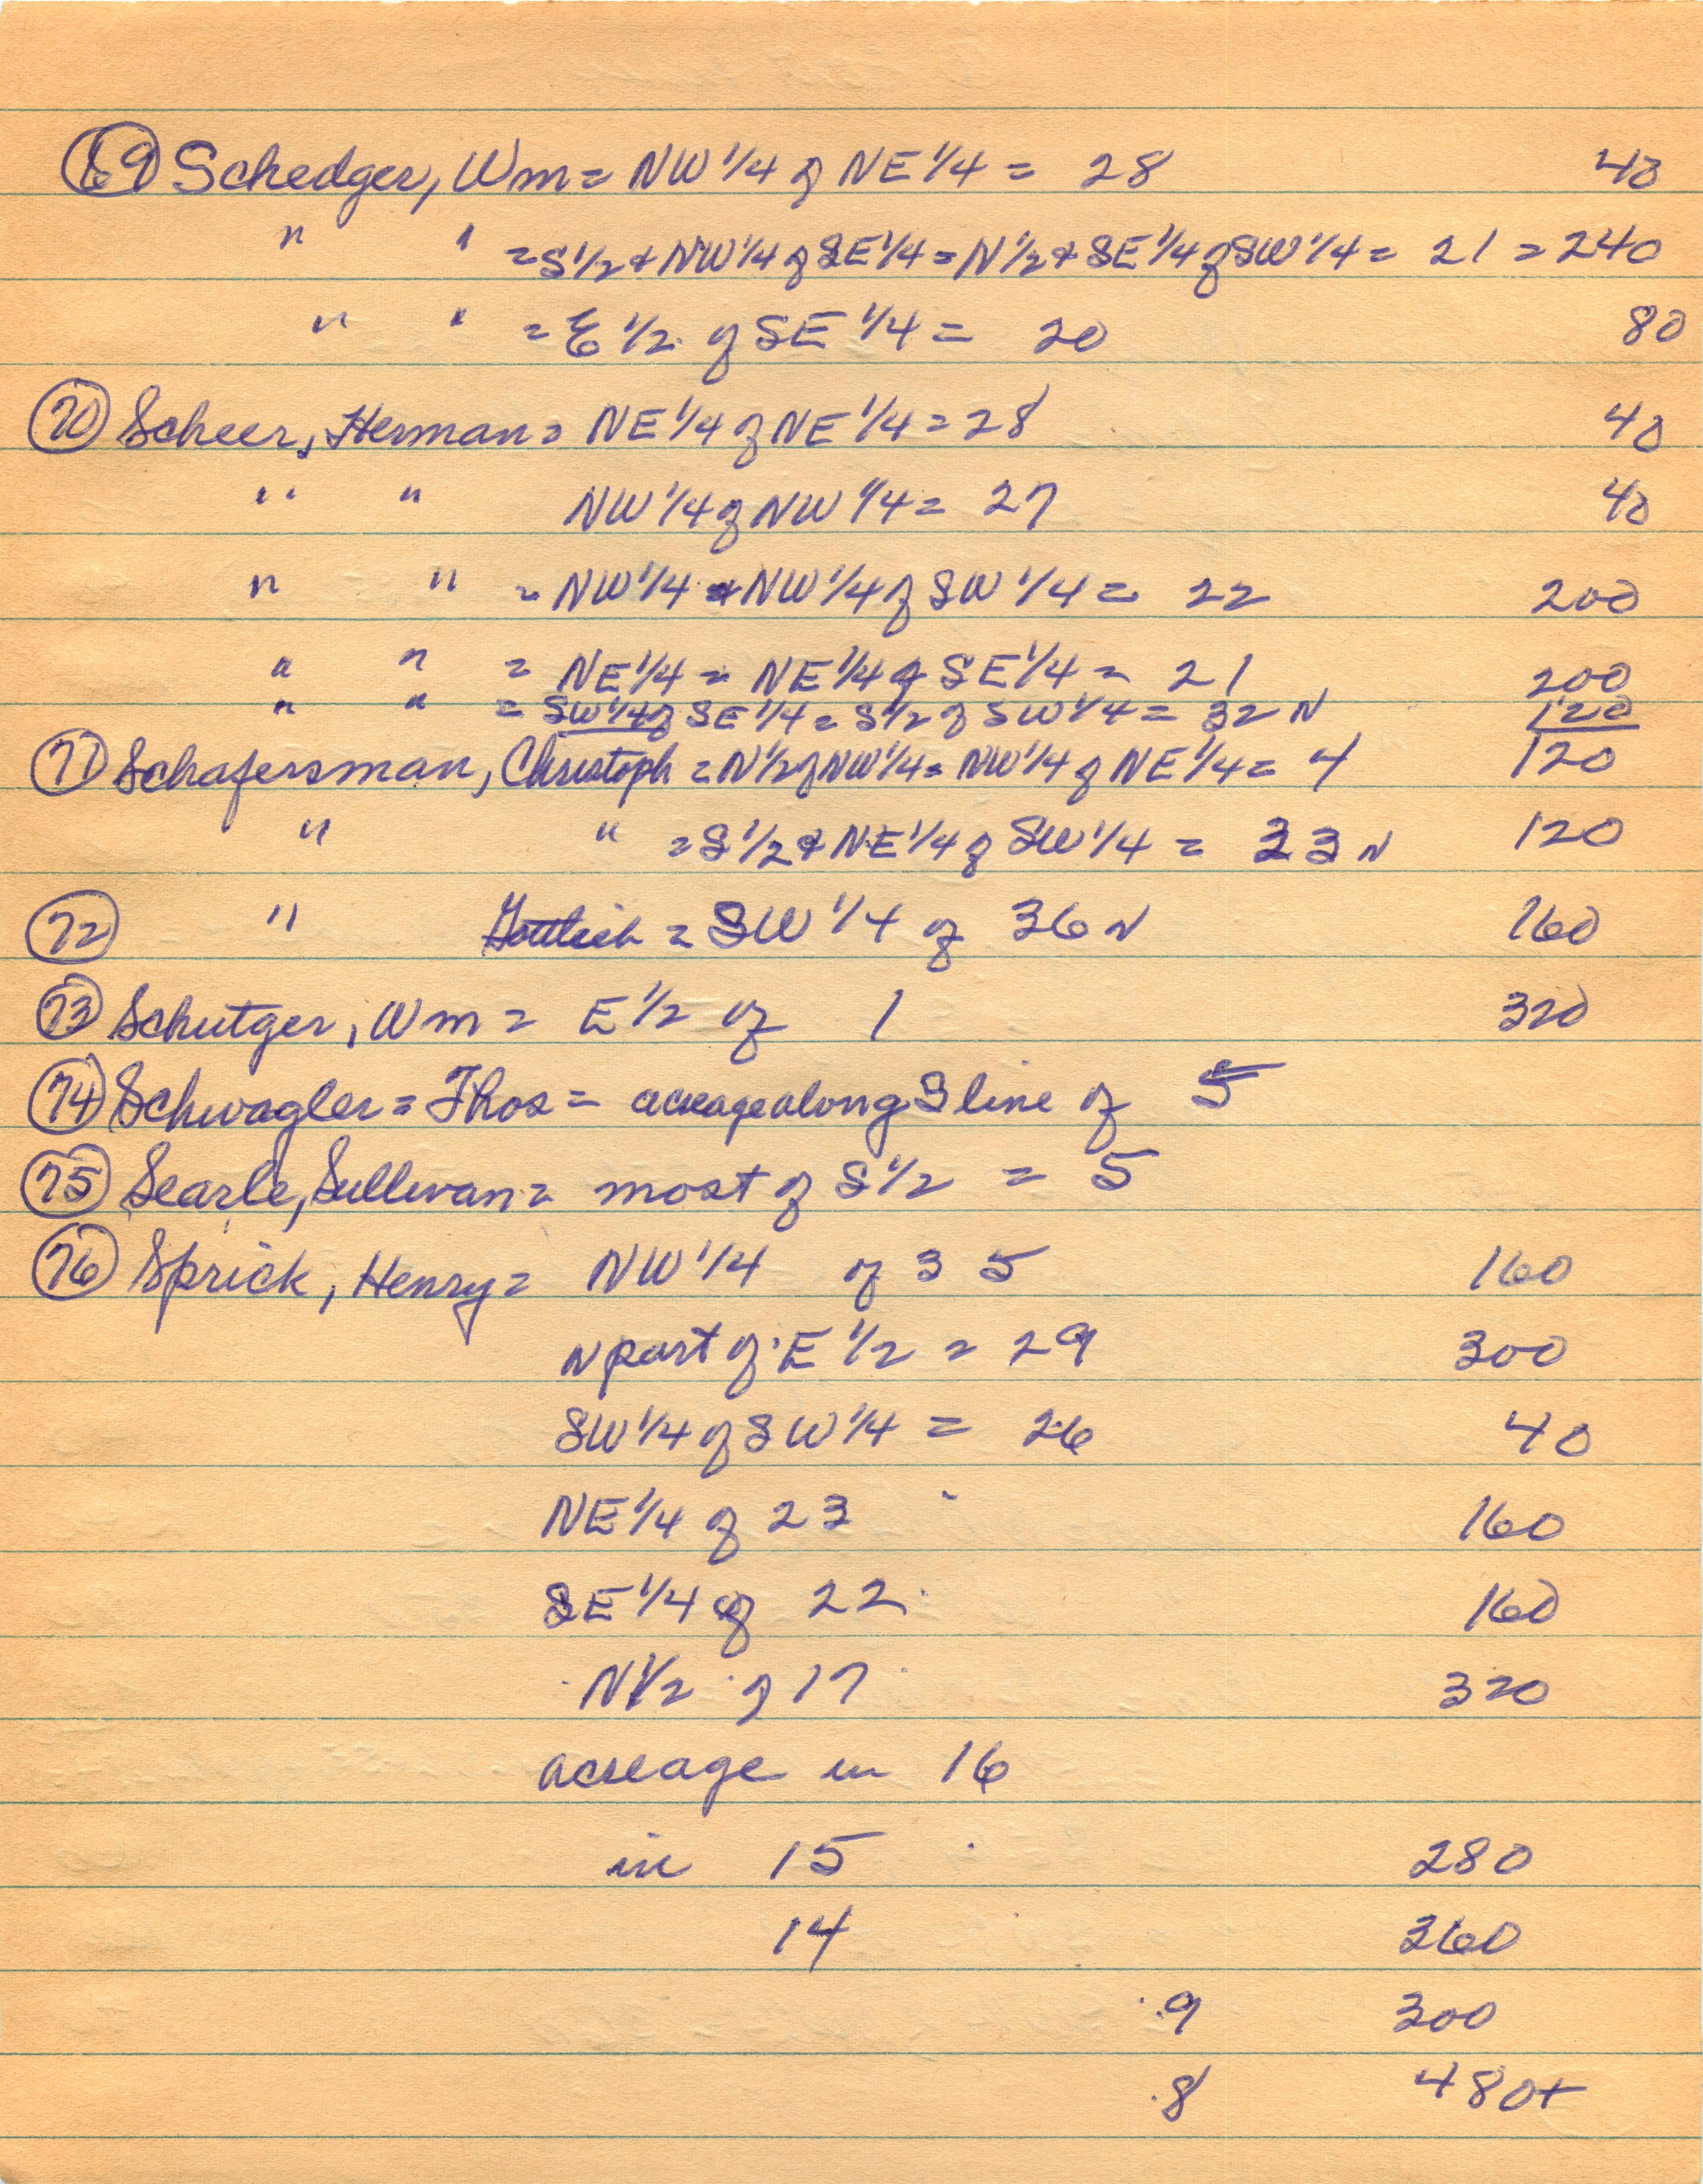 69 Schedger, Wm = NW 1/4 of NE 1/4 = 28 40
" " = S 1/2 + NW 1/4 of SE 1/4 = N 1/2 + SE 1/4 of SW 1/4 = 21 = 240
" " = E 1/2 of SE 1/4 = 20 80
70 Scheer, Herman = NE 1/4 of NE 1/4 = 28 40
" " NW 1/4 of NW 1/4 = 27 40
" " = NW 1/4 + NW 1/4 of SW 1/4 = 22 200
" " = NE 1/4 = NE 1/4 of SE 1/4 = 21 200
" " = SW 1/4 of SE 1/4 = S 1/2 of SW 1/4 = 32 N 120
71 Schafersman, Christoph = N 1/2 of NW 1/4 = NW 1/4 of NE 1/4 = 4 120
" " = S 1/2 + NE 1/4 of SW 1/4 = 33 N 120
72 " Gottlieb = SW 1/4 of 36 N 160
73 Schutger, Wm = E 1/2 of 1 320
74 Schwagler = Thos = acreage along S line of 5
75 Searle, Sullivan = most of S 1/2 = 5
76 Sprick, Henry = NW 1/4 of 35 160
N part of E 1/2 = 29 300
SW 1/4 of SW 1/4 = 26 40
NE 1/4 of 23 160
SE 1/4 of 22 160
N 1/2 of 17 320
acreage in 16
in 15 280
14 360
9 300
8 480+